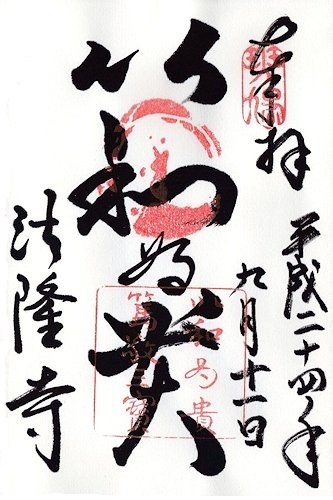 奉拝
平成二十四年
九月十一日
以和為貴
法隆寺
以和為貴
篤敬三寳